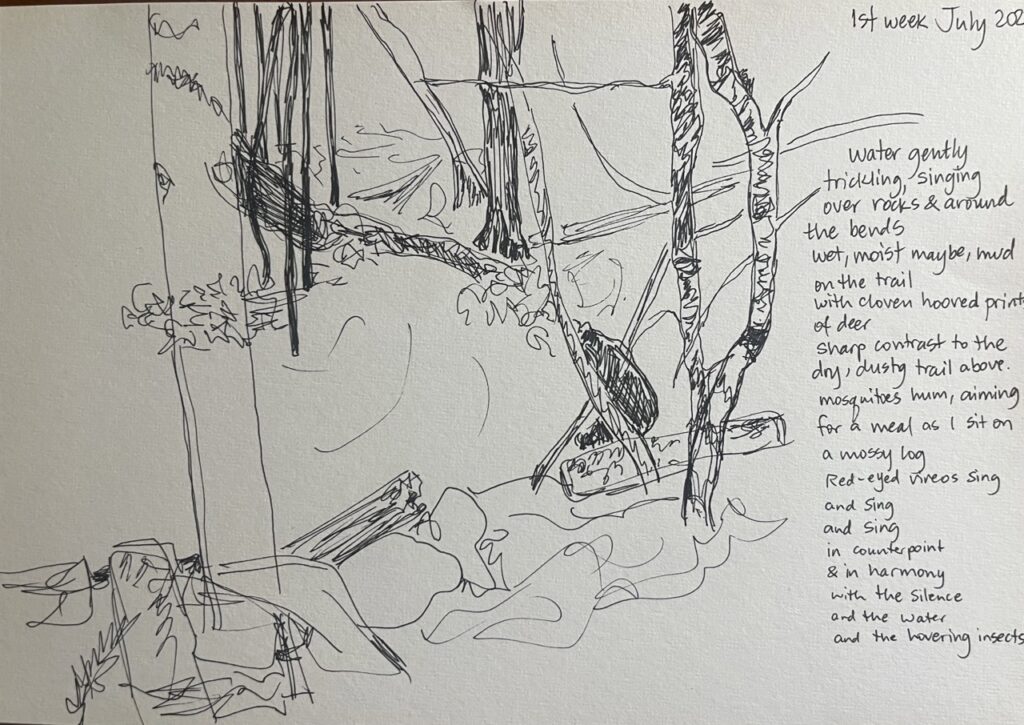 1st week July 202
Water gently
trickling, singing
over rocks & around
the bends
wet, moist maybe, mud
on the trail
with cloven hooved prints
of deer
sharp contrast to the
dry, dusty trail above.
mosquitoes hum, aiming
for a meal as I sit on
a mossy log
Red-eyed vireos sing
and sing
and sing
in counterpoint
& in harmony
with the silence
and the water
and the hovering insects